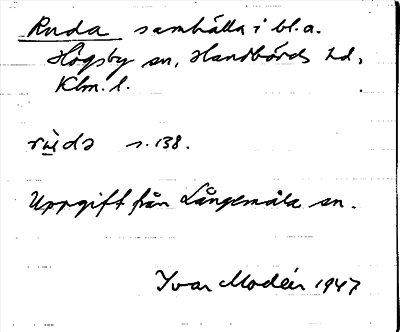 Ruda samhälla i bl.a.
Högsby sn, Handbörds hd,
Klm. l.
rùda s. 138.
Uppgift från Långemåla sn.
Ivar Modéer 1947